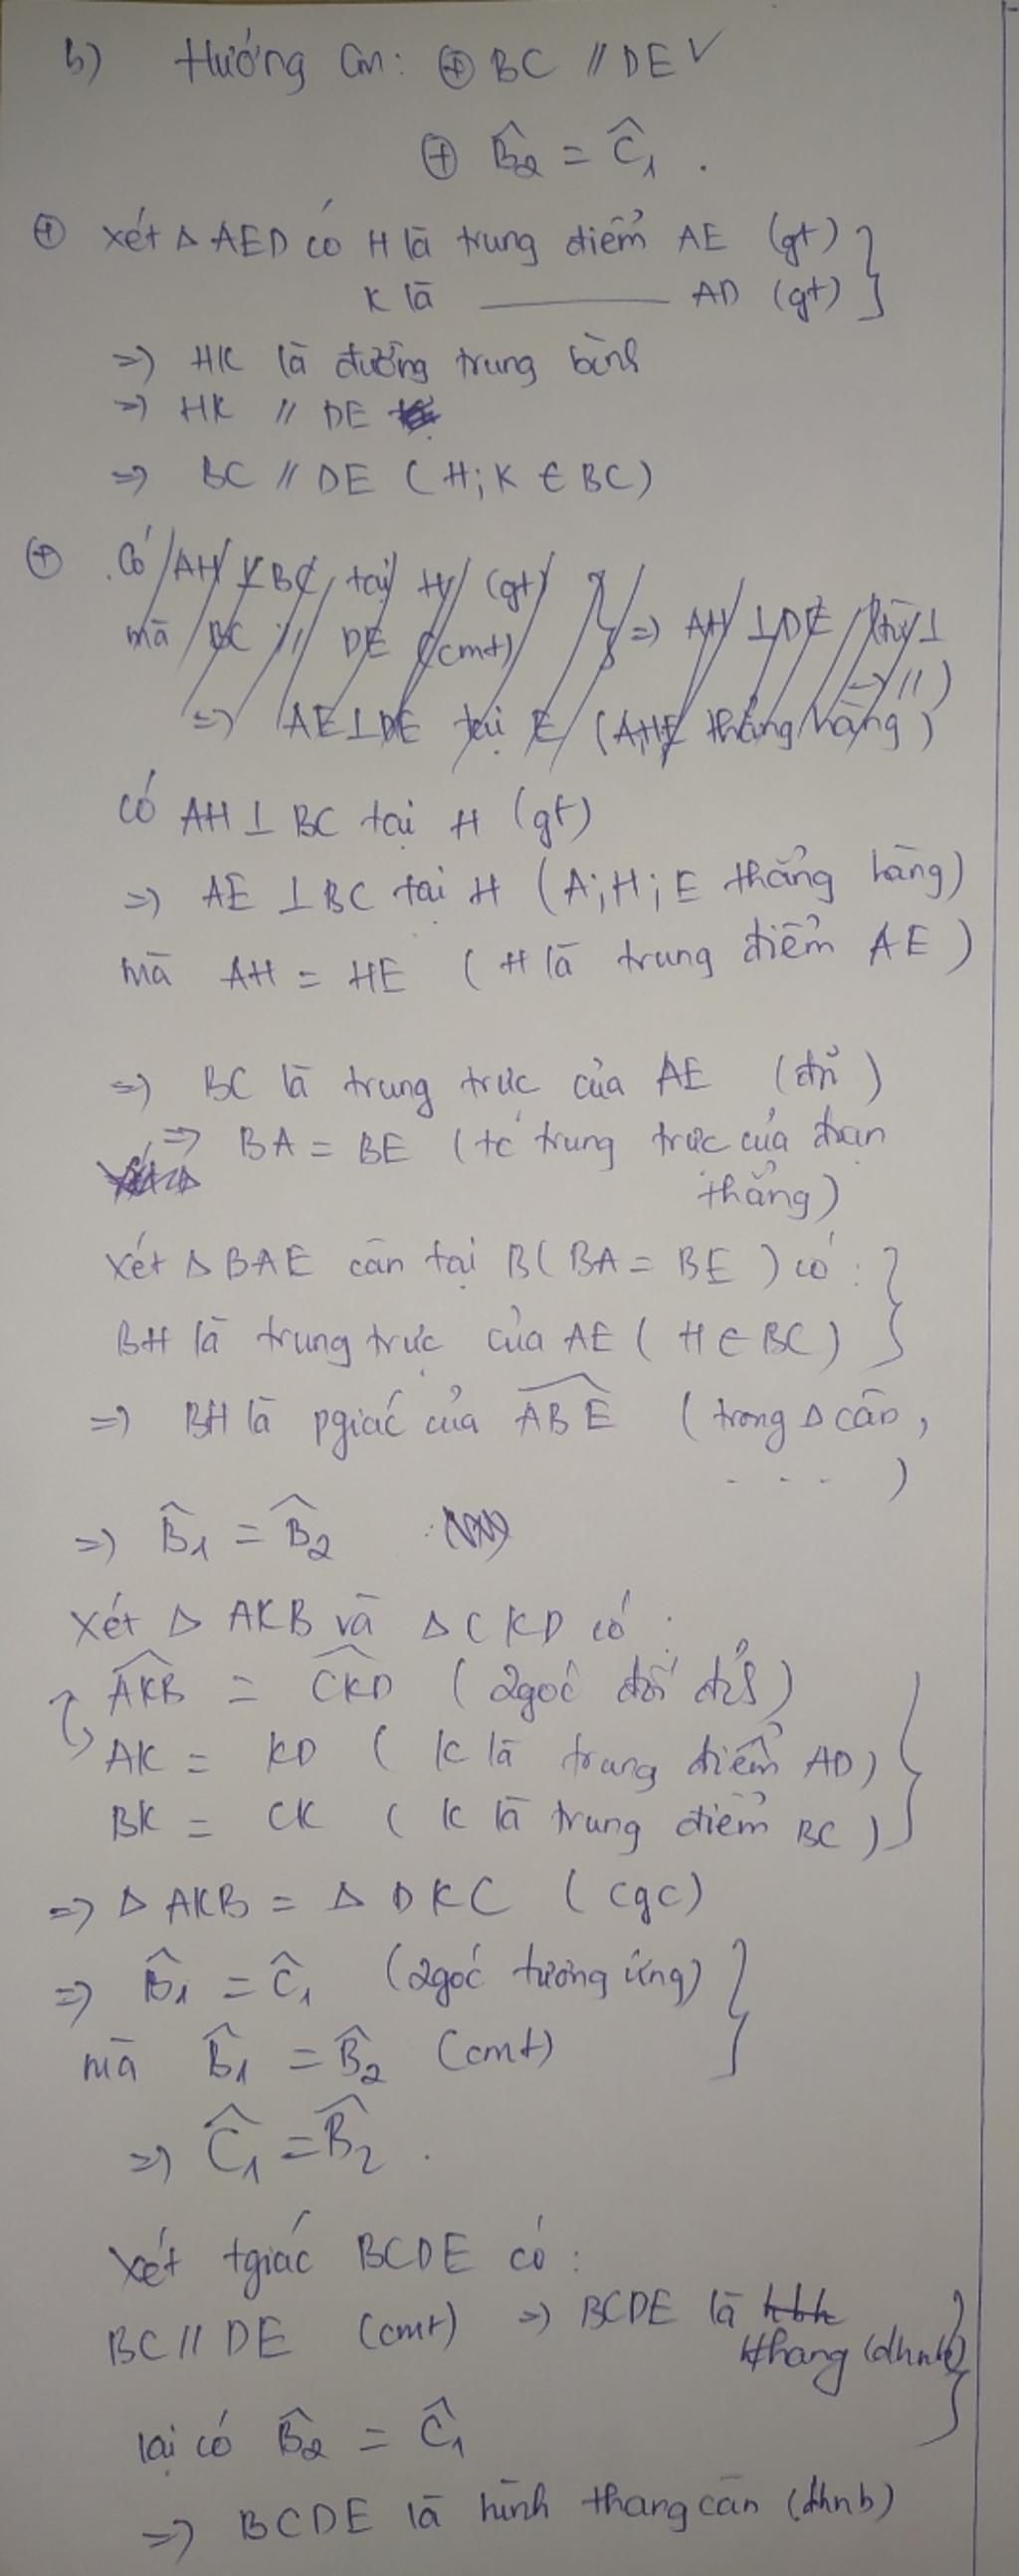 b) Hướng Cm: ⊕ BC // DE ✓
⊕ B̂₂ = Ĉ₁ .
⊕ xét Δ AED có H là trung điểm AE (gt) }
K là ———— AD (gt)
=> HK là đường trung bình
=> HK // DE
=> BC // DE ( H; K ∈ BC)
⊕ Có AH ⊥ BC tại H (gt) } => AH ⊥ DE (từ ⊥
mà BC // DE (cmt) -> //)
=> AE ⊥ DE tại E (AHE thẳng hàng)
có AH ⊥ BC tại H (gt)
=> AE ⊥ BC tại H (A; H; E thẳng hàng)
mà AH = HE ( H là trung điểm AE )
=> BC là trung trực của AE (đn)
=> BA = BE (tc trung trực của đoạn
thẳng)
xét Δ BAE cân tại B( BA = BE ) có : }
BH là trung trực của AE ( H ∈ BC)
=> BH là pgiác của ABE ( trong Δ cân,
- - - - )
=> B̂₁ = B̂₂
xét Δ AKB và Δ CKD có :
AKB = CKD ( 2góc đối đỉnh )
AK = KD ( K là trung điểm AD) }
BK = CK ( K là trung điểm BC )
=> Δ AKB = Δ DKC ( cgc)
=> B̂₁ = Ĉ₁ (2góc tương ứng) }
mà B̂₁ = B̂₂ (cmt)
=> Ĉ₁ = B̂₂ .
xét tgiác BCDE có :
BC // DE (cmt) => BCDE là hbh
hthang (dhnb) }
lại có B̂₂ = Ĉ₁
=> BCDE là hình thang cân (dhnb)